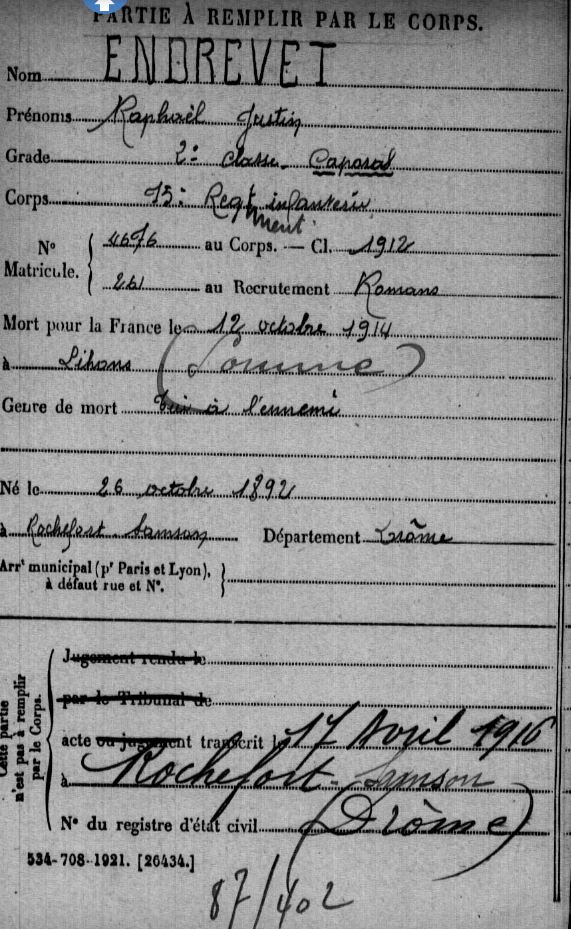 PARTIE À REMPLIR PAR LE CORPS.
Nom ENDREVET
Prénoms Raphaël Justin
Grade 2e classe Caporal
Corps 75e Regt infanterie
ment
N° Matricule. { 4676 au Corps. — Cl. 1912
261 au Recrutement Romans
Mort pour la France le 12 octobre 1914
à Lihons (Somme)
Genre de mort tué à l'ennemi
Né le 26 octobre 1892
à Rochefort Samson Département Drôme
Arrt municipal (pr Paris et Lyon), à défaut rue et N°. }
Cette partie n'est pas à remplir par le Corps.
Jugement rendu le
par le Tribunal de
acte ou jugement transcrit le 17 Avril 1916
à Rochefort-Samson
N° du registre d'état civil (Drôme)
534-708-1921. [26434.]
87/402